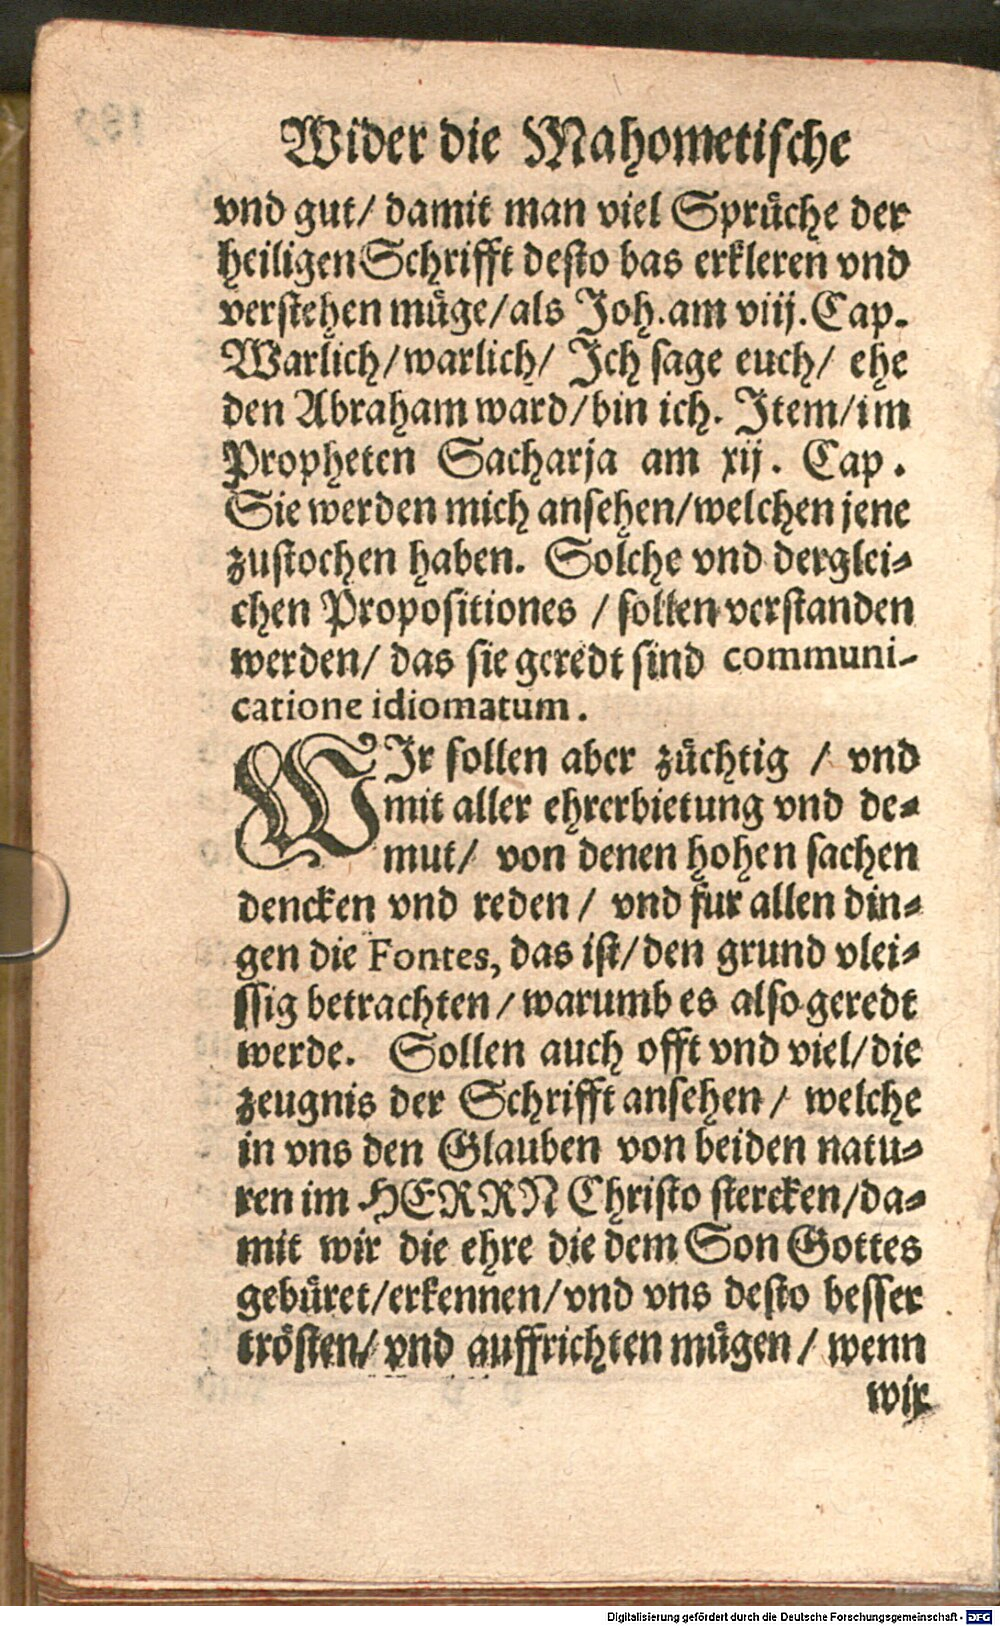 Wider die Mahometische
vnd gut/ damit man viel Sprüche der
heiligen Schrifft desto bas erkleren vnd
verstehen müge/als Joh.am viij.Cap.
Warlich/warlich/ Jch sage euch/ ehe
den Abraham ward/bin ich. Jtem/im
Propheten Sacharja am xij. Cap.
Sie werden mich ansehen/welchen jene
zustochen haben. Solche vnd derglei-
chen Propositiones / sollen verstanden
werden/ das sie geredt sind communi-
catione idiomatum.
WJr sollen aber züchtig / vnd
mit aller ehrerbietung vnd de-
mut/ von denen hohen sachen
dencken vnd reden / vnd fur allen din-
gen die Fontes, das ist/den grund vlei-
ssig betrachten/warumb es also geredt
werde. Sollen auch offt vnd viel/die
zeugnis der Schrifft ansehen/ welche
in vns den Glauben von beiden natu-
ren im HERRN Christo stercken/da-
mit wir die ehre die dem Son Gottes
gebüret/erkennen/vnd vns desto besser
trösten/ vnd auffrichten mügen/ wenn
wir
Digitalisierung gefördert durch die Deutsche Forschungsgemeinschaft - DFG